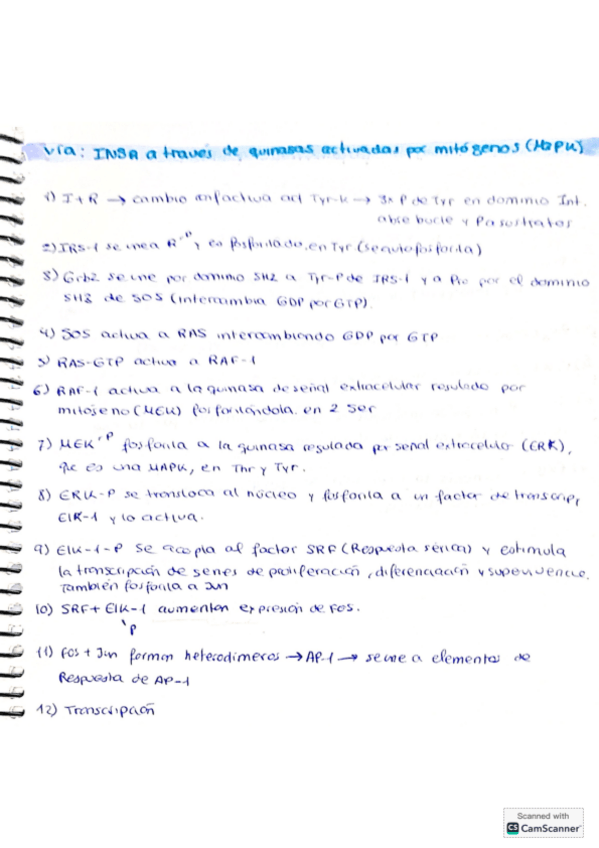 vía: INSR a través de quinasas activadas por mitógenos (MAPK)
1) I+R → cambio conf activa act Tyr-k → 3x P de Tyr en dominio Int.
abre bucle y P a sustratos
2) IRS-1 se une a R-P y es fosforilado en Tyr (se autofosforila)
3) Grb2 se une por dominio SH2 a Tyr-P de IRS-1 y a Pro por el dominio
SH3 de SOS (intercambia GDP por GTP).
4) SOS activa a RAS intercambiando GDP por GTP
5) RAS-GTP activa a RAF-1
6) RAF-1 activa a la quinasa de señal extracelular regulado por
mitógeno (MEK) fosforilándola en 2 Ser
7) MEK-P fosforila a la quinasa regulada por señal extracelular (ERK),
que es una MAPK, en Thr y Tyr.
8) ERK-P se transloca al núcleo y fosforila a un factor de transcrip,
ElK-1 y lo activa.
9) ElK-1-P se acopla al factor SRF (Respuesta sérica) y estimula
la transcripción de genes de proliferación, diferenciación y supervivencia.
también fosforila a Jun
10) SRF + ElK-1 aumentan expresión de FOS.
P
11) FOS + Jun forman heterodímeros → AP-1 → se une a elementos de
Respuesta de AP-1
12) Transcripción
Scanned with
CS CamScanner